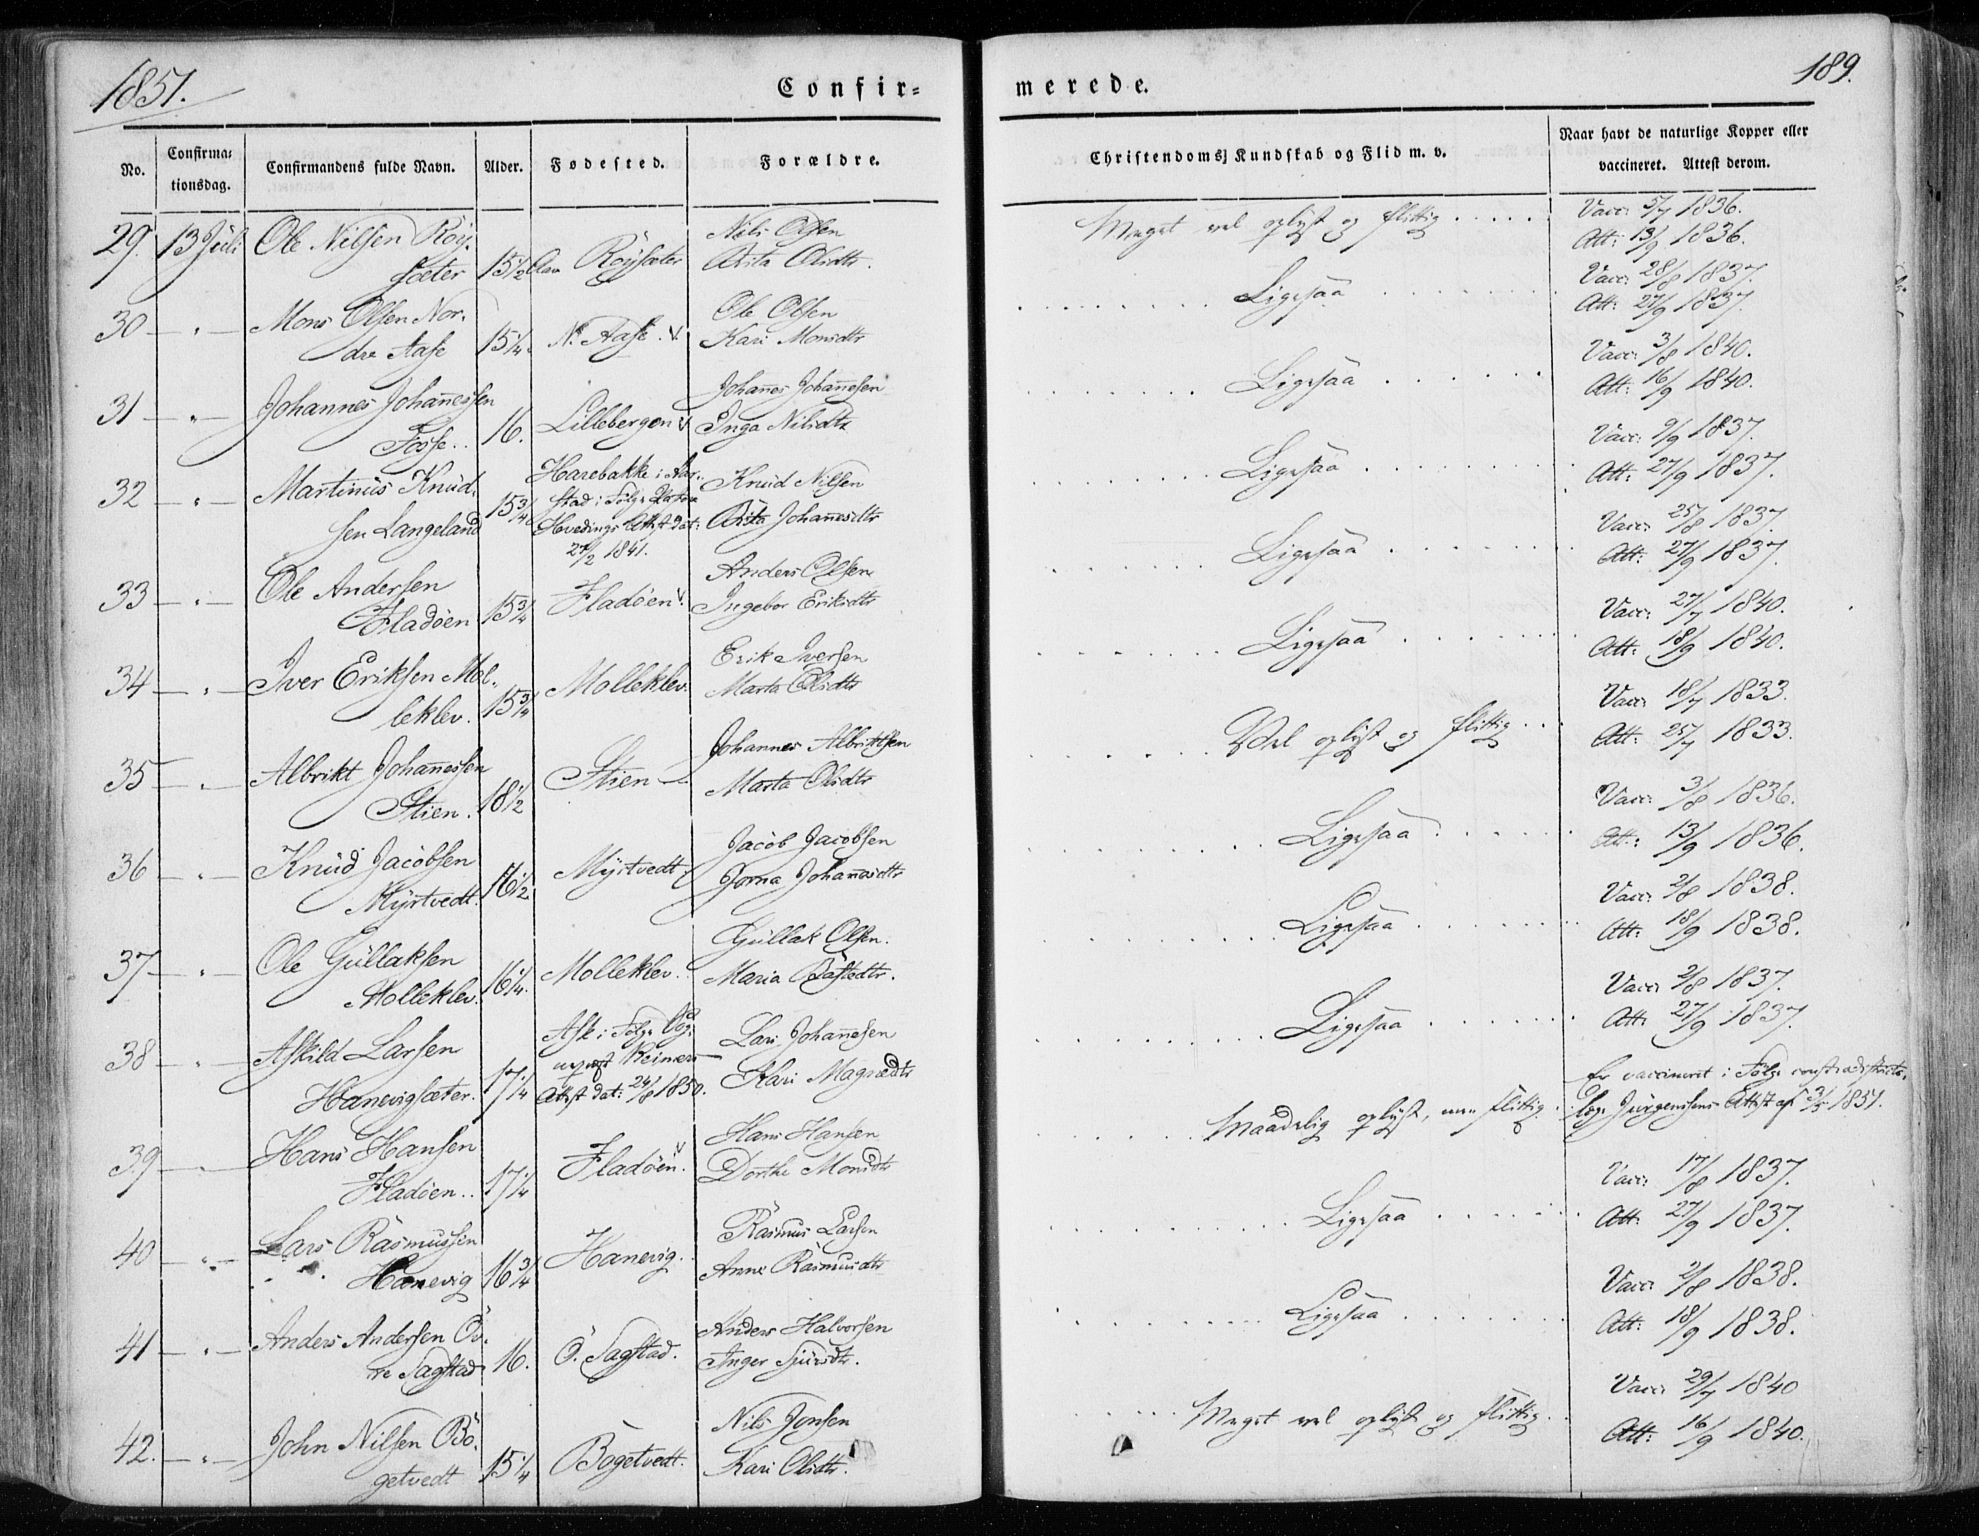 1851.
Confir-
merede.
189.
No.
Confirma-
tionsdag.
Confirmandens fulde Navn.
Alder.
Fødested.
Forældre.
Christendoms Kundskab og Flid m. v.
Naar havt de naturlige Kopper eller
vaccineret. Attest derom.
29. 13 Juli Ole Nilsen Röy-
sæter 15 1/2 Röysæter
Nils Olsen
Brita Olsdtr.
Meget vel oplyst og flittig
Vacc: 5/7 1836.
Att: 13/9 1836.
30 — " — Mons Olsen Nor-
dre Aase 15 1/4 N. Aase.
Ole Olsen
Kari Monsdtr
Ligesaa
Vacc: 28/8 1837.
Att: 27/9 1837.
31 — " — Johannes Johannessen
Fosse. 16. Lillebergen
Johannes Johannesen
Inga Nilsdtr
Ligesaa
Vacc: 3/8 1840.
Att: 16/9 1840.
32 — " — Martinus Knud-
sen Langeland 15 3/4
Harebakke i Aar-
stad i Følge
Hvedings Attest dat:
27/2 1841.
Knud Nilsen
Brita Johannesdtr
Ligesaa
Vacc: 9/9 1837.
Att: 27/9 1837.
33 — " — Ole Andersen
Fladöen 15 3/4 Fladöen
Anders Olsen
Ingebor Eriksdtr
Ligesaa
Vacc: 25/8 1837.
Att: 27/9 1837.
34 — " — Iver Eriksen Mol-
leklev. 15 3/4 Molleklev
Erik Iversen
Marta Olsdtr
Ligesaa
Vacc: 27/7 1840.
Att: 18/9 1840.
35 — " — Albrikt Johannessen
Stien. 18 1/2 Stien
Johannes Albriktsen
Marta Olsdtr
Vel oplyst og flittig
Vacc: 18/7 1833.
Att: 25/7 1833.
36 — " — Knud Jacobsen
Myrtvedt. 16 1/2 Myrtvedt
Jacob Jacobsen
Gorna Johannesdtr
Ligesaa
Vacc: 3/8 1836.
Att: 13/9 1836.
37 — " — Ole Gullaksen
Molleklev. 16 1/4. Molleklev.
Gullak Olsen.
Maria Bastedtr.
Ligesaa
Vacc: 2/8 1838.
Att: 18/9 1838.
38 — " — Askild Larsen
Hanevigsæter. 17 1/4
Ask i Følge Sog-
nepræst Reimers
Attest dat: 24/8 1850.
Lars Johannesen
Kari Magnedtr
Ligesaa
Vacc: 2/8 1837.
Att: 27/9 1837.
39 — " — Hans Hansen
Fladöen. 17 1/4 Fladöen.
Hans Hansen
Dorthe Monsdtr
Maadelig oplyst, men flittig
Er vaccineret i Følge
Jürgensens Attest af 2/5 1851.
40 — " — Lars Rasmussen
Hanevig 16 3/4 Hanevig.
Rasmus Larsen
Anne Rasmusdtr
Ligesaa
Vacc: 17/8 1837.
Att: 27/9 1837.
41 — " — Anders Andersen Öv-
re Sagstad 16. Ö. Sagstad.
Anders Halvorsen
Inger Sjursdtr.
Ligesaa
Vacc: 2/8 1838.
Att: 18/9 1838.
42. — " — John Nilsen Bö-
getvedt 15 1/4 Bögetvedt.
Nils Jonsen
Kari Olsdtr.
Meget vel oplyst og flittig
Vacc: 29/7 1840
Att: 16/9 1840.